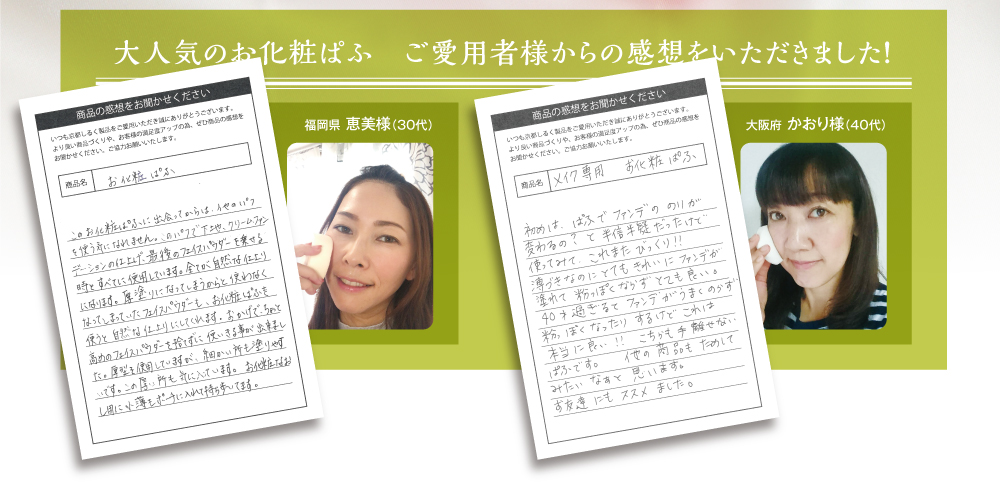 大人気のお化粧ぱふ　ご愛用者様からの感想をいただきました!
商品の感想をお聞かせください
いつも京都しるく製品をご愛用いただき誠にありがとうございます。
より良い商品づくりや、お客様の満足度アップの為、ぜひ商品の感想を
お聞かせください。ご協力お願いいたします。
商品名 お化粧ぱふ
このお化粧ぱふに出会ってからは、他のパフ
を使う気になれません。このパフで下地や、クリームファン
デーションの仕上げ、最後のフェイスパウダーを乗せる
時とすべてに使用しています。全てが自然な仕上り
になります。厚塗りになってしまうからと使わなく
なってしまっていたフェイスパウダーも、お化粧ぱふを
使うと自然な仕上りにしてくれます。おかげで、ちょっと
高めのフェイスパウダーを捨てずに使いきる事が出来まし
た。厚型を使用していますが、細かい所も塗りやす
いです。この厚い所も気に入っています。お化粧なお
し用に小薄もポーチに入れて持ち歩いてます。
福岡県 恵美様(30代)
商品の感想をお聞かせください
いつも京都しるく製品をご愛用いただき誠にありがとうございます。
より良い商品づくりや、お客様の満足度アップの為、ぜひ商品の感想を
お聞かせください。ご協力お願いいたします。
商品名 メイク専用 お化粧ぱふ
初めは、ぱふでファンデの のりが
変わるの？と半信半疑だったけど
使ってみて、これまたびっくり!!
薄づきなのにとてもきれいにファンデが
塗れて 粉っぽくならず とても良い。
40才過ぎると ファンデがうまくのらず
粉っぽくなったり するけど これは
本当に良い!! こちらも手離せない
ぱふです。 他の商品もためして
みたいなぁと 思います。
お友達にも ススメ ました。
大阪府 かおり様(40代)